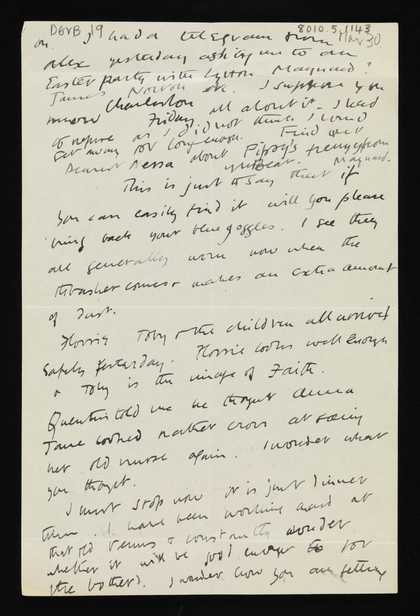 DGVB 19
8010.5.1143
Mar 30
on. I had a telegram from
Alex yesterday asking me to an
Easter party with Lytton Maynard?
James Norton etc. I suppose you
know Charleston
Friday all about it. I had
to refuse as I did not think I could
get away for long enough. Find out
Dearest Nessa about Pippy's from
Maynard.
This is just to say that if
you can easily find it will you please
bring back your blue goggles. I see they
are generally worn now when the
thrasher comes & makes an extra amount
of dust.
Florrie Toby & the children all arrived
safely yesterday. Florrie looks well enough
& Toby is the image of Faith.
Quentin told me he thought Anna
Jane looked rather cross at seeing
her old nurse again. I wonder what
you thought.
I must stop now it is just dinner
time. I have been working hard at
that old Venus & constantly wonder
whether it will be good enough to for
the bothers. I wonder how you are getting